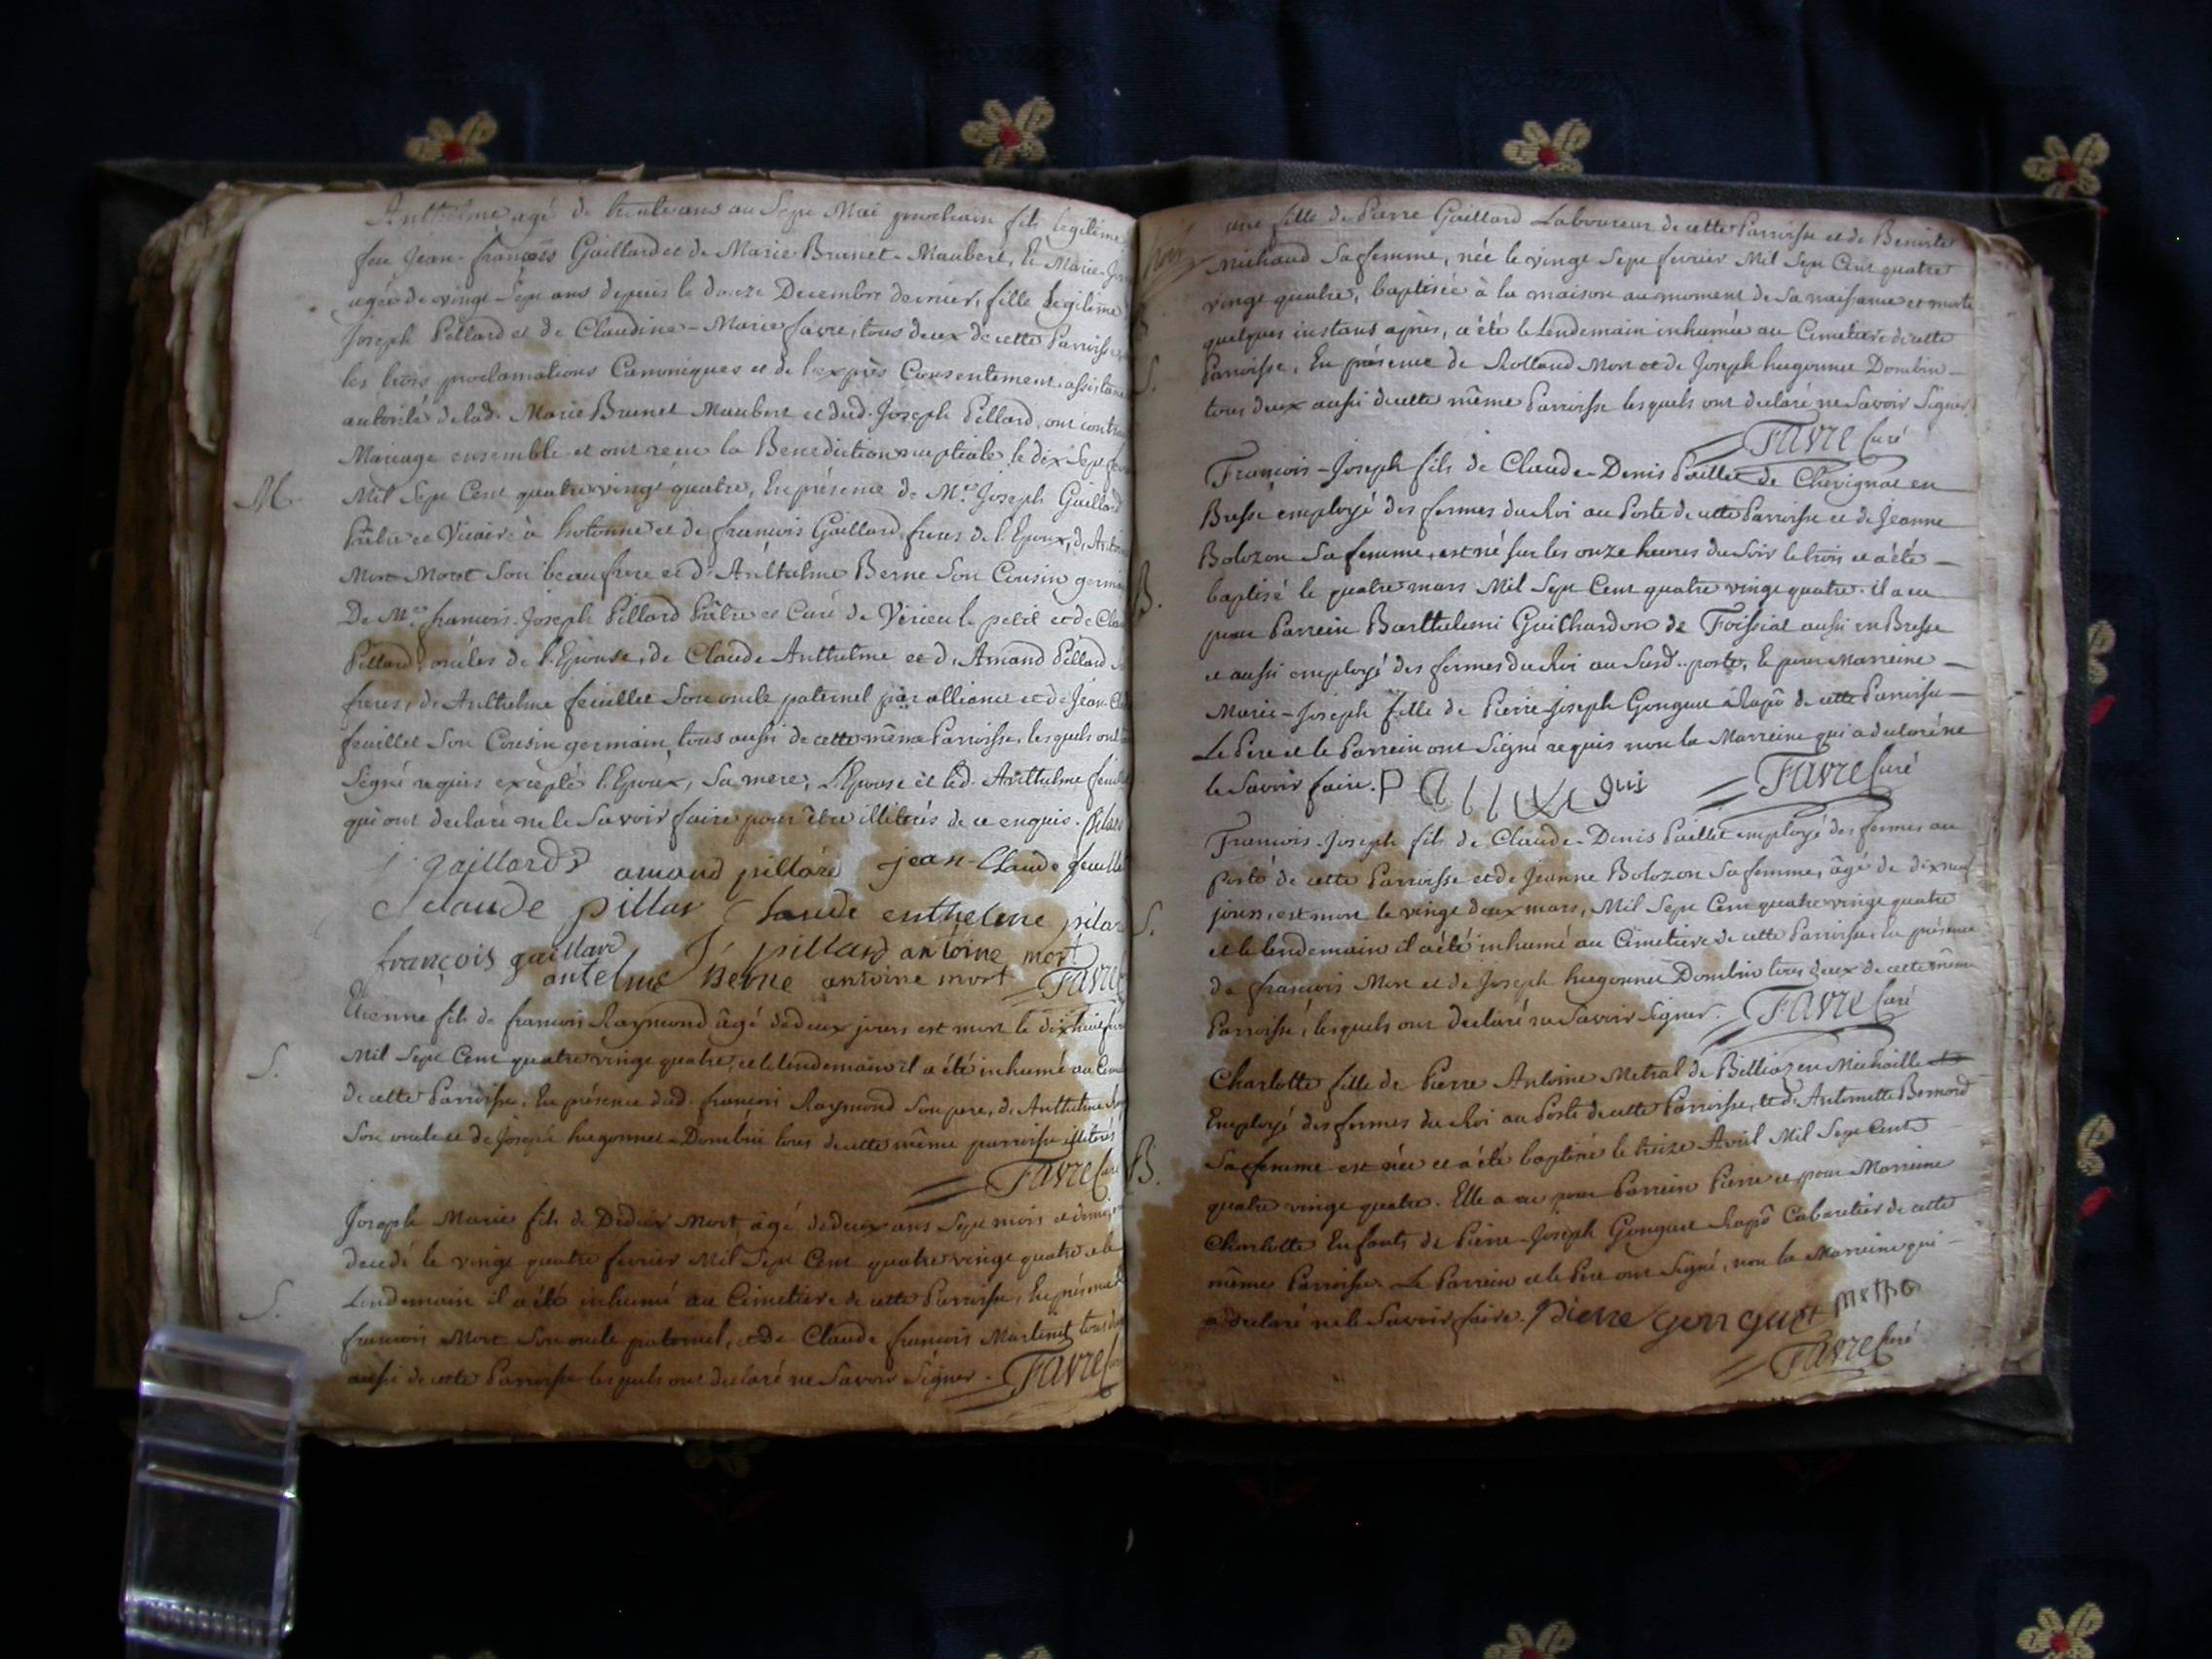 Anthelme agé de trente ans au Sept Mai prochain fils legitime
feu Jean-françois Gaillard et de Marie Brunet-Maubert, Et Marie
agée de vingt Sept ans depuis le douze Decembre dernier, fille Legitime
Joseph Pillard et de Claudine-Marie favre, tous deux de cette Parroisse
les trois proclamations Canoniques et de l'exprès Consentement assistance
autorité de lad. Marie Brunet Maubert et dud. Joseph Pillard, ont contr
Mariage ensemble et ont recu la Benediction nuptiale le dix Sept
M. Mil Sept Cent quatre vingt quatre, En présence de Mre Joseph Gaillard
Prêtre et Vicaire à hotonne et de françois Gaillard, freres de l'Epoux, d'Antoi
Mort Son beaufrere et d'Anthelme Berne Son Cousin germa
De Mre francois-Joseph Pillard Prêtre et Curé de Virieu le petit et de Cla
Pillard, oncles de l'Epouse, de Claude Anthelme et d'Amand Pillard
freres, de Anthelme feuillet Son oncle paternel par alliance et de Jean-Cl
feuillet Son Cousin germain, tous aussi de cette même Parroisse, lesquels ont
Signé requis excepté l'Epoux, Sa mere, L'Epouse et led. Anthelme feuil
qui ont declaré ne le Savoir faire pour être illiterés de ce enquis. Pilar
j gaillard amand pillard jean-Claude feuille
Claude pillar Claude enthelme pilar
françois gaillard J pillard antoine mort
antelme Berne antoine mort FAVRE
Etienne fils de francois Raymond âgé de deux jours est mort le dix huit
S. Mil Sept Cent quatre vingt quatre, et le lendemain il a été inhumé au Cim
de cette Parroisse, En présence dud. francois Raymond Son pere, de Anthelme
Son oncle et de Joseph hugonnet-Dombin tous de cette même parroisse illiterés
FAVRE Curé
Joseph Marie fils de Didier Mort, âgé de deux ans Sept mois et demi
decedé le vingt quatre fevrier Mil Sept Cent quatre vingt quatre et le
S. Lendemain il a été inhumé au Cimetiere de cette Parroisse, En présence
francois Mort Son oncle paternel, et de Claude francois Martinet tous
aussi de cette Parroisse lesquels ont declaré ne Savoir Signer. FAVRE
une fille de Pierre Gaillard Laboureur de cette Parroisse et de Benoite
Michaud Sa femme, née le vingt Sept fevrier Mil Sept Cent quatre
vingt quatre, baptisée à la maison au moment de Sa naissance et morte
quelques instans après, a été le Lendemain inhumée au Cimetiere de cette
S. Parroisse, En présence de Rolland Mort et de Joseph hugonnet Dombin
tous deux aussi de cette même Parroisse lesquels ont declaré ne Savoir Signer.
FAVRE Curé
François-Joseph fils de Claude-Denis Paillet de Chavignat en
Bresse employé des fermes du Roi au Poste de cette Parroisse et de Jeanne
Bolozon Sa femme, est né sur les onze heures du Soir le trois et a été
B. baptisé le quatre mars Mil Sept Cent quatre vingt quatre. il a eu
pour Parrein Barthelemi Guichardon de Foissiat aussi en Bresse
et aussi employé des fermes du Roi au Susd. poste, Et pour Marreine
Marie-Joseph fille de Pierre-Joseph Gonguet Rapô de cette Parroisse
Le Pere et le Parrein ont Signé requis non la Marreine qui a declaré ne
le Savoir faire. FAVRE Curé
François-Joseph fils de Claude-Denis Paillet employé des fermes au
poste de cette Parroisse et de Jeanne Bolozon Sa femme, âgé de dix neuf
S. jours, est mort le vingt deux mars, Mil Sept Cent quatre vingt quatre
et le lendemain il a été inhumé au Cimetiere de cette Parroisse, En présence
de francois Mort et de Joseph hugonnet Dombin tous deux de cette même
Parroisse, lesquels ont declaré ne Savoir Signer. FAVRE Curé
Charlotte fille de Pierre Antoine Metral de Billiaz en Michaille
Employé des fermes du Roi au Poste de cette Parroisse, et d'Antoinette Bernard
B. Sa femme est née et a été baptisée le treize Avril Mil Sept Cent
quatre vingt quatre. Elle a eu pour Parrein Pierre et pour Marreine
Charlotte Enfants de Pierre-Joseph Gonguet Rapô Cabaretier de cette
même Parroisse. Le Parrein et le Pere ont Signé, non la Marreine qui
a declaré ne le Savoir faire. pierre gonguet metra
FAVRE Curé